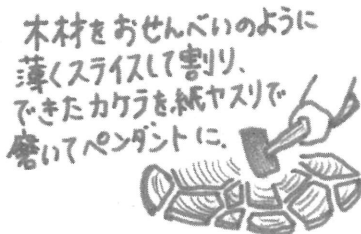 木材をおせんべいのように
薄くスライスして割り、
できたカケラを紙ヤスリで
磨いてペンダントに。